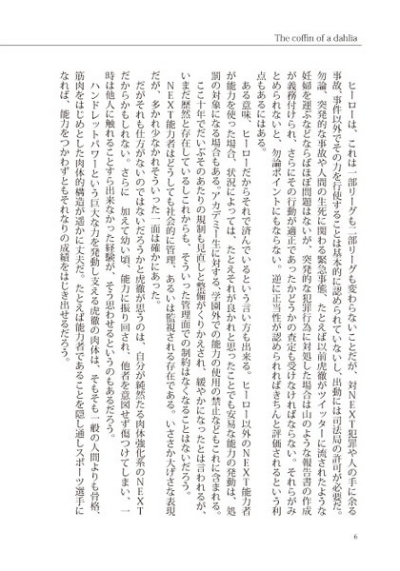 The coffin of a dahlia
ヒーローは、これは一部リーグも二部リーグも変わらないことだが、対NEXT犯罪や人の手に余る
事故、事件以外でその力を行使することは基本的に認められていないし、出動には司法局の許可が必要だ。
勿論、突発的な事故や人間の生死に関わる緊急事態、たとえば以前虎徹がツイッターに流されたような
妊婦を運ぶなどならばほぼ問題はないが、突発的な犯罪行為に対処した場合は山のような報告書の作成
が義務付けられ、さらにその行動が適正であったかどうかの査定も受けなければならない。それらがみ
とめられないと、勿論ポイントにもならない。逆に正当性が認められればきちんと評価されるという利
点もあるにはある。
ある意味、ヒーローだからそれで済んでいるという言い方も出来る。ヒーロー以外のNEXT能力者
が能力を使った場合、状況によっては、たとえそれが良かれと思ったことでも安易な能力の発動は、処
罰の対象になる場合もある。アカデミー生に対する、学園外での能力の使用の禁止などもこれに含まれる。
ここ十年でだいぶそのあたりの規制も見直しと整備がくりかえされ、緩やかになったとは言われるが、
いまだ歴然と存在しているしこれからも、そういった管理面での制約はなくなることはないだろう。
NEXT能力者はどうしても社会的に管理、あるいは監視される存在である。いささか大げさな表現
だが、多かれ少なかれそういった一面は確かにあった。
だがそれも仕方がないのではないだろうかと虎徹が思うのは、自分が純然たる肉体強化系のNEXT
だからかもしれない。さらに、加えて幼い頃、能力に振り回され、他者を意図せず傷つけてしまい、一
時は他人に触れることすら出来なかった経験が、そう思わせるというのもあるだろう。
ハンドレットパワーという巨大な力を発動し支える虎徹の肉体は、そもそも一般の人間よりも骨格、
筋肉をはじめとした肉体的構造が遥かに丈夫だ。たとえば能力者であることを隠し通しスポーツ選手に
なれば、能力をつかわずともそれなりの成績をはじき出せるだろう。
6